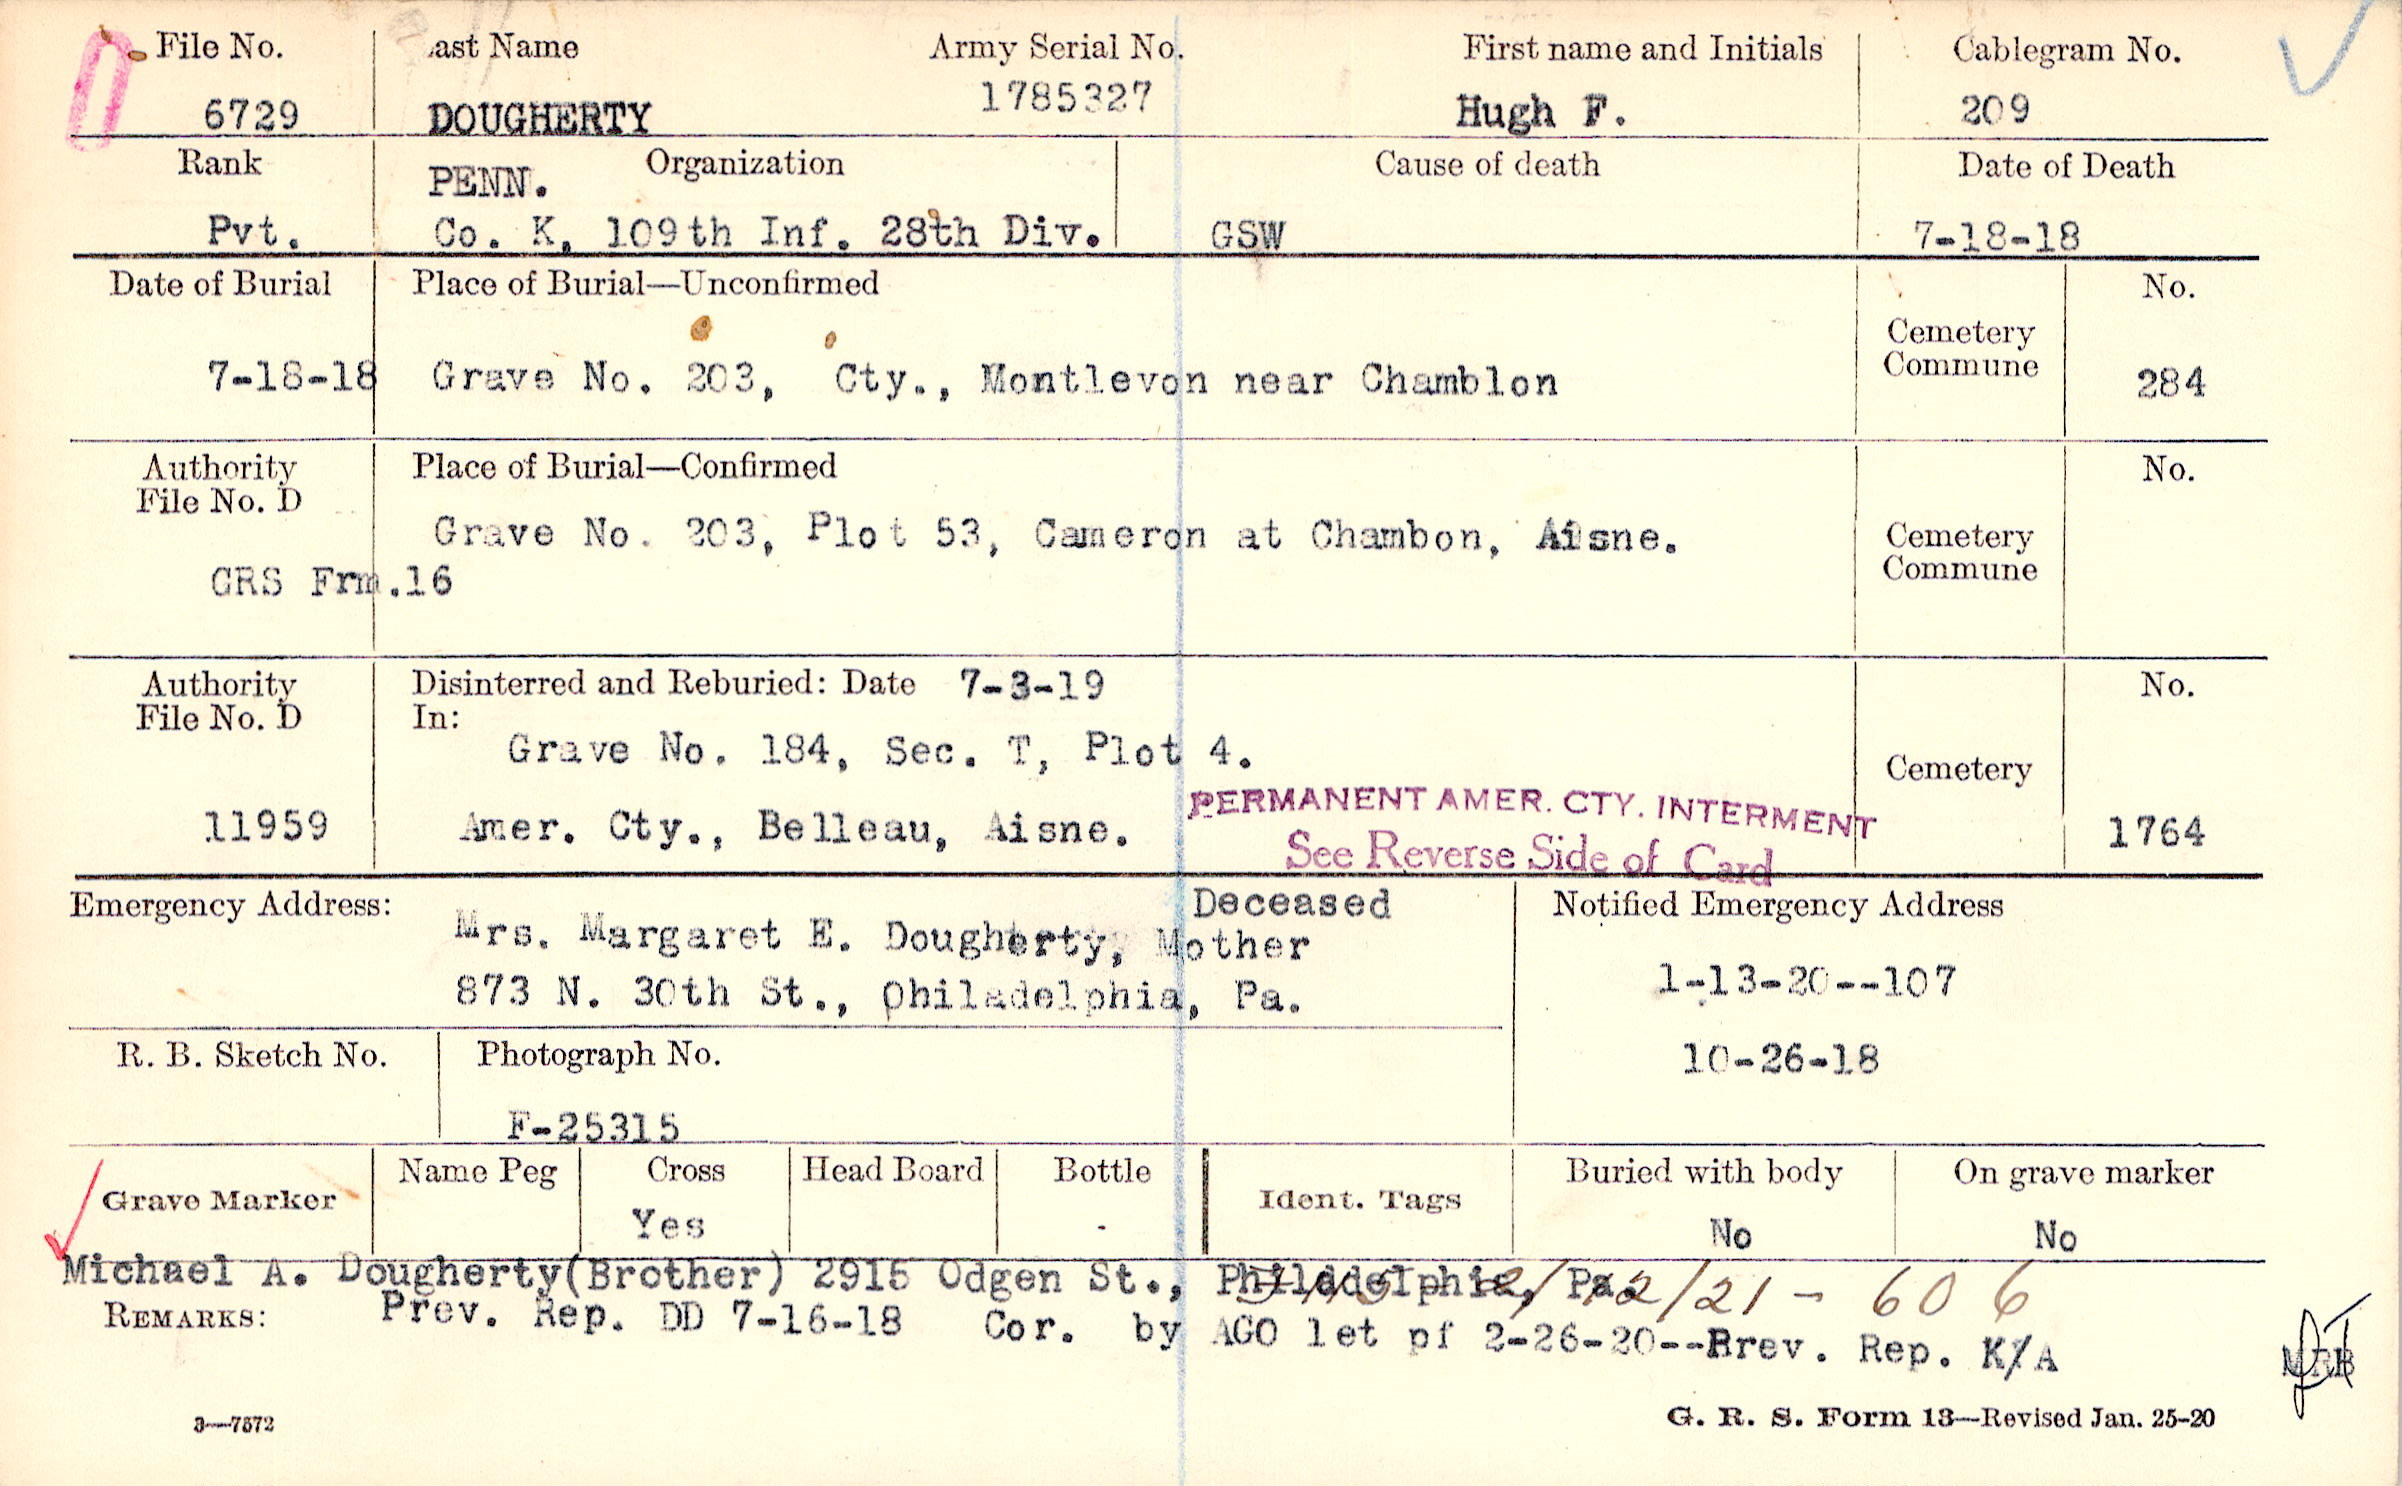 File No. ast Name Army Serial No. First name and Initials Cablegram No.
6729 DOUGHERTY 1785327 Hugh F. 209
Rank Organization Cause of death Date of Death
PENN.
Pvt. Co. K, 109th Inf. 28th Div. GSW 7-18-18
Date of Burial Place of Burial—Unconfirmed No.
Cemetery
Commune
7-18-18 Grave No. 203, Cty., Montlevon near Chamblon 284
Authority Place of Burial—Confirmed No.
File No. D
Grave No. 203, Plot 53, Cameron at Chambon, Aisne. Cemetery
Commune
GRS Frm.16
Authority Disinterred and Reburied: Date 7-3-19 No.
File No. D In:
Grave No. 184, Sec. T, Plot 4. Cemetery
PERMANENT AMER. CTY. INTERMENT
11959 Amer. Cty., Belleau, Aisne. 1764
See Reverse Side of Card
Emergency Address: Deceased Notified Emergency Address
Mrs. Margaret E. Dougherty, Mother
1-13-20--107
873 N. 30th St., Philadelphia, Pa.
R. B. Sketch No. Photograph No. 10-26-18
F-25315
Grave Marker Name Peg Cross Head Board Bottle Ident. Tags Buried with body On grave marker
Yes - No No
Michael A. Dougherty(Brother) 2915 Odgen St., Philadelphia, Pa. 2/21 - 606
REMARKS: Prev. Rep. DD 7-16-18 Cor. by AGO let pf 2-26-20--Prev. Rep. K/A
MRB
3—7572 G. R. S. Form 13—Revised Jan. 25-20